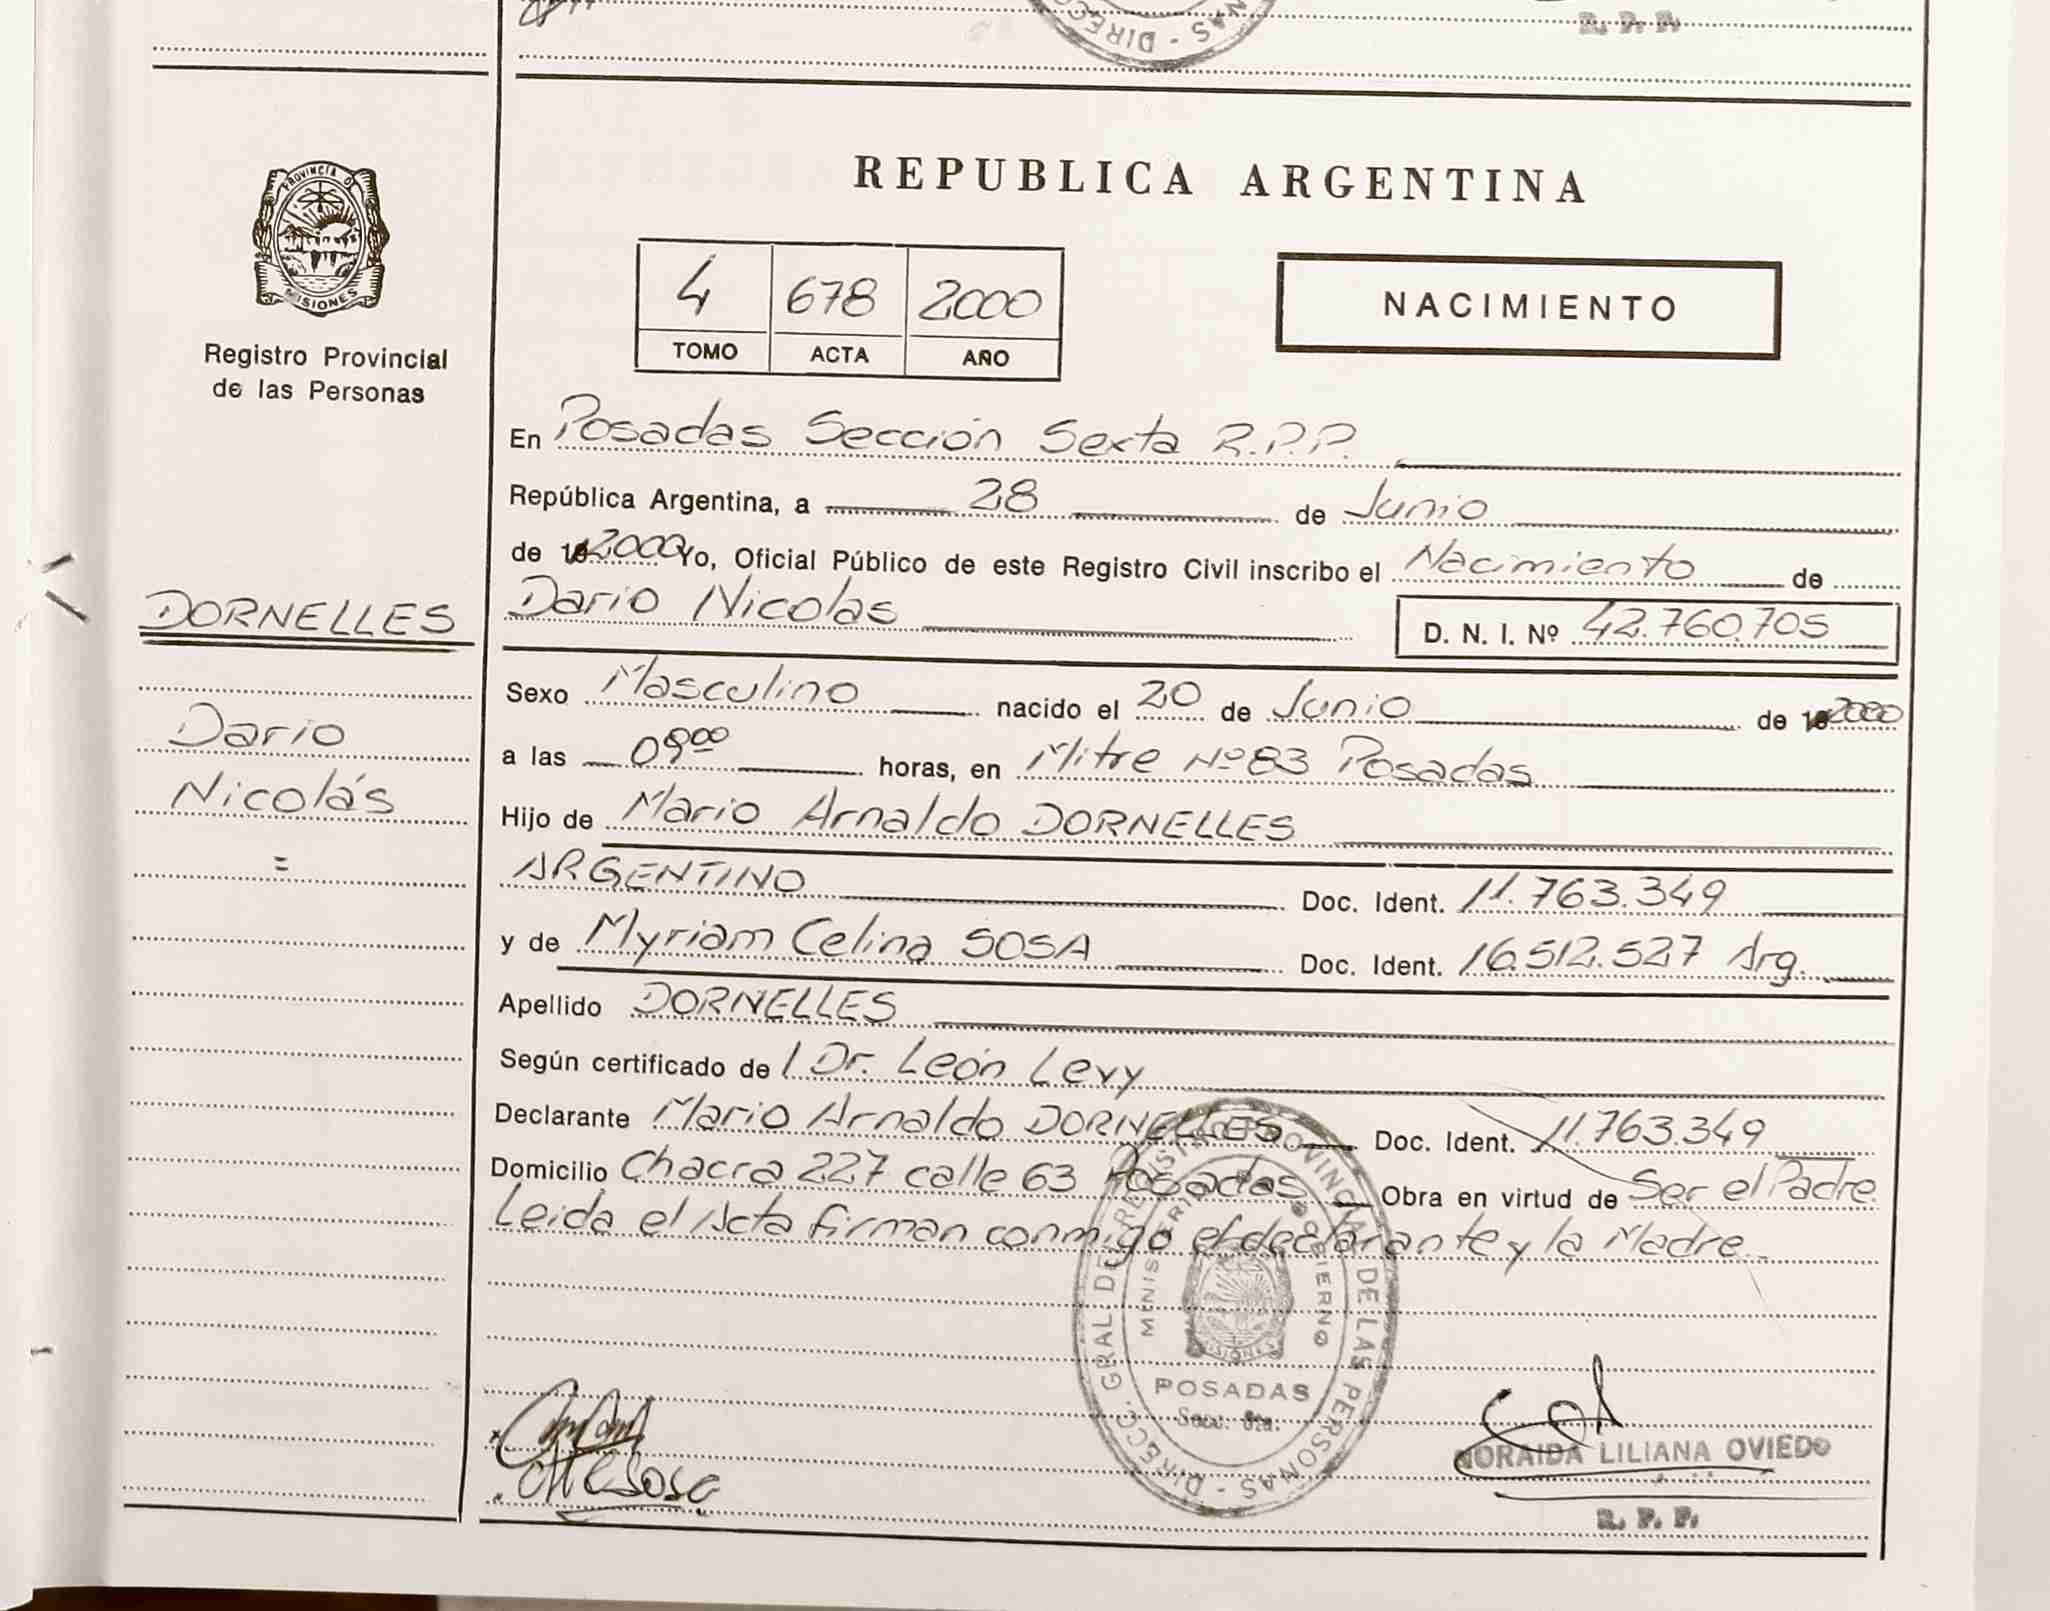 DIRECC
NAS - DIREC
R. P. P.
PROVINCIA DE
MISIONES
Registro Provincial
de las Personas
DORNELLES
Dario
Nicolás
=
REPUBLICA ARGENTINA
4 678 2000
TOMO ACTA AÑO
NACIMIENTO
En Posadas Sección Sexta R.P.P.
República Argentina, a 28 de Junio
de 2000 Yo, Oficial Público de este Registro Civil inscribo el Nacimiento de
Dario Nicolas D. N. I. Nº 42.760.705
Sexo Masculino nacido el 20 de Junio de 2000
a las horas, en Mitre Nº 83 Posadas
Hijo de Mario Arnaldo DORNELLES
ARGENTINO Doc. Ident. 11.763.349
y de Myriam Celina SOSA Doc. Ident. 16.512.527 Arg.
Apellido DORNELLES
Según certificado de l Dr. León Levy
Declarante Mario Arnaldo DORNELLES Doc. Ident. 11.763.349
Domicilio Chacra 227 calle 63 Posadas Obra en virtud de Ser el Padre.
Leida el Acta firman conmigo el declarante y la Madre.-
DIREC. GRAL DEL REGISTRO PROVINCIAL DE LAS PERSONAS
MINISTERIO DE GOBIERNO
MISIONES
POSADAS
Secc. 6ta.
NORAIDA LILIANA OVIEDO
R. P. P.